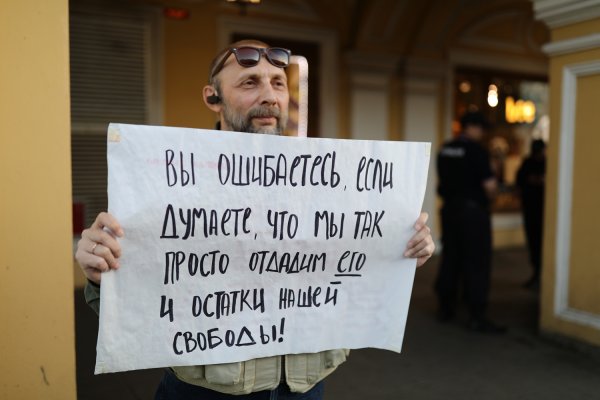 ВЫ ОШИБАЕТЕСЬ, ЕСЛИ
ДУМАЕТЕ, ЧТО МЫ ТАК
ПРОСТО ОТДАДИМ ЕГО
И ОСТАТКИ НАШЕЙ
СВОБОДЫ!